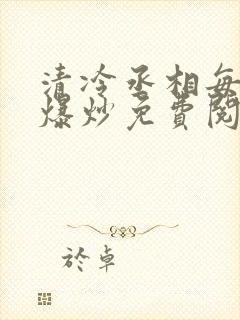 清冷丞相每
爆炒免費閱
於卓